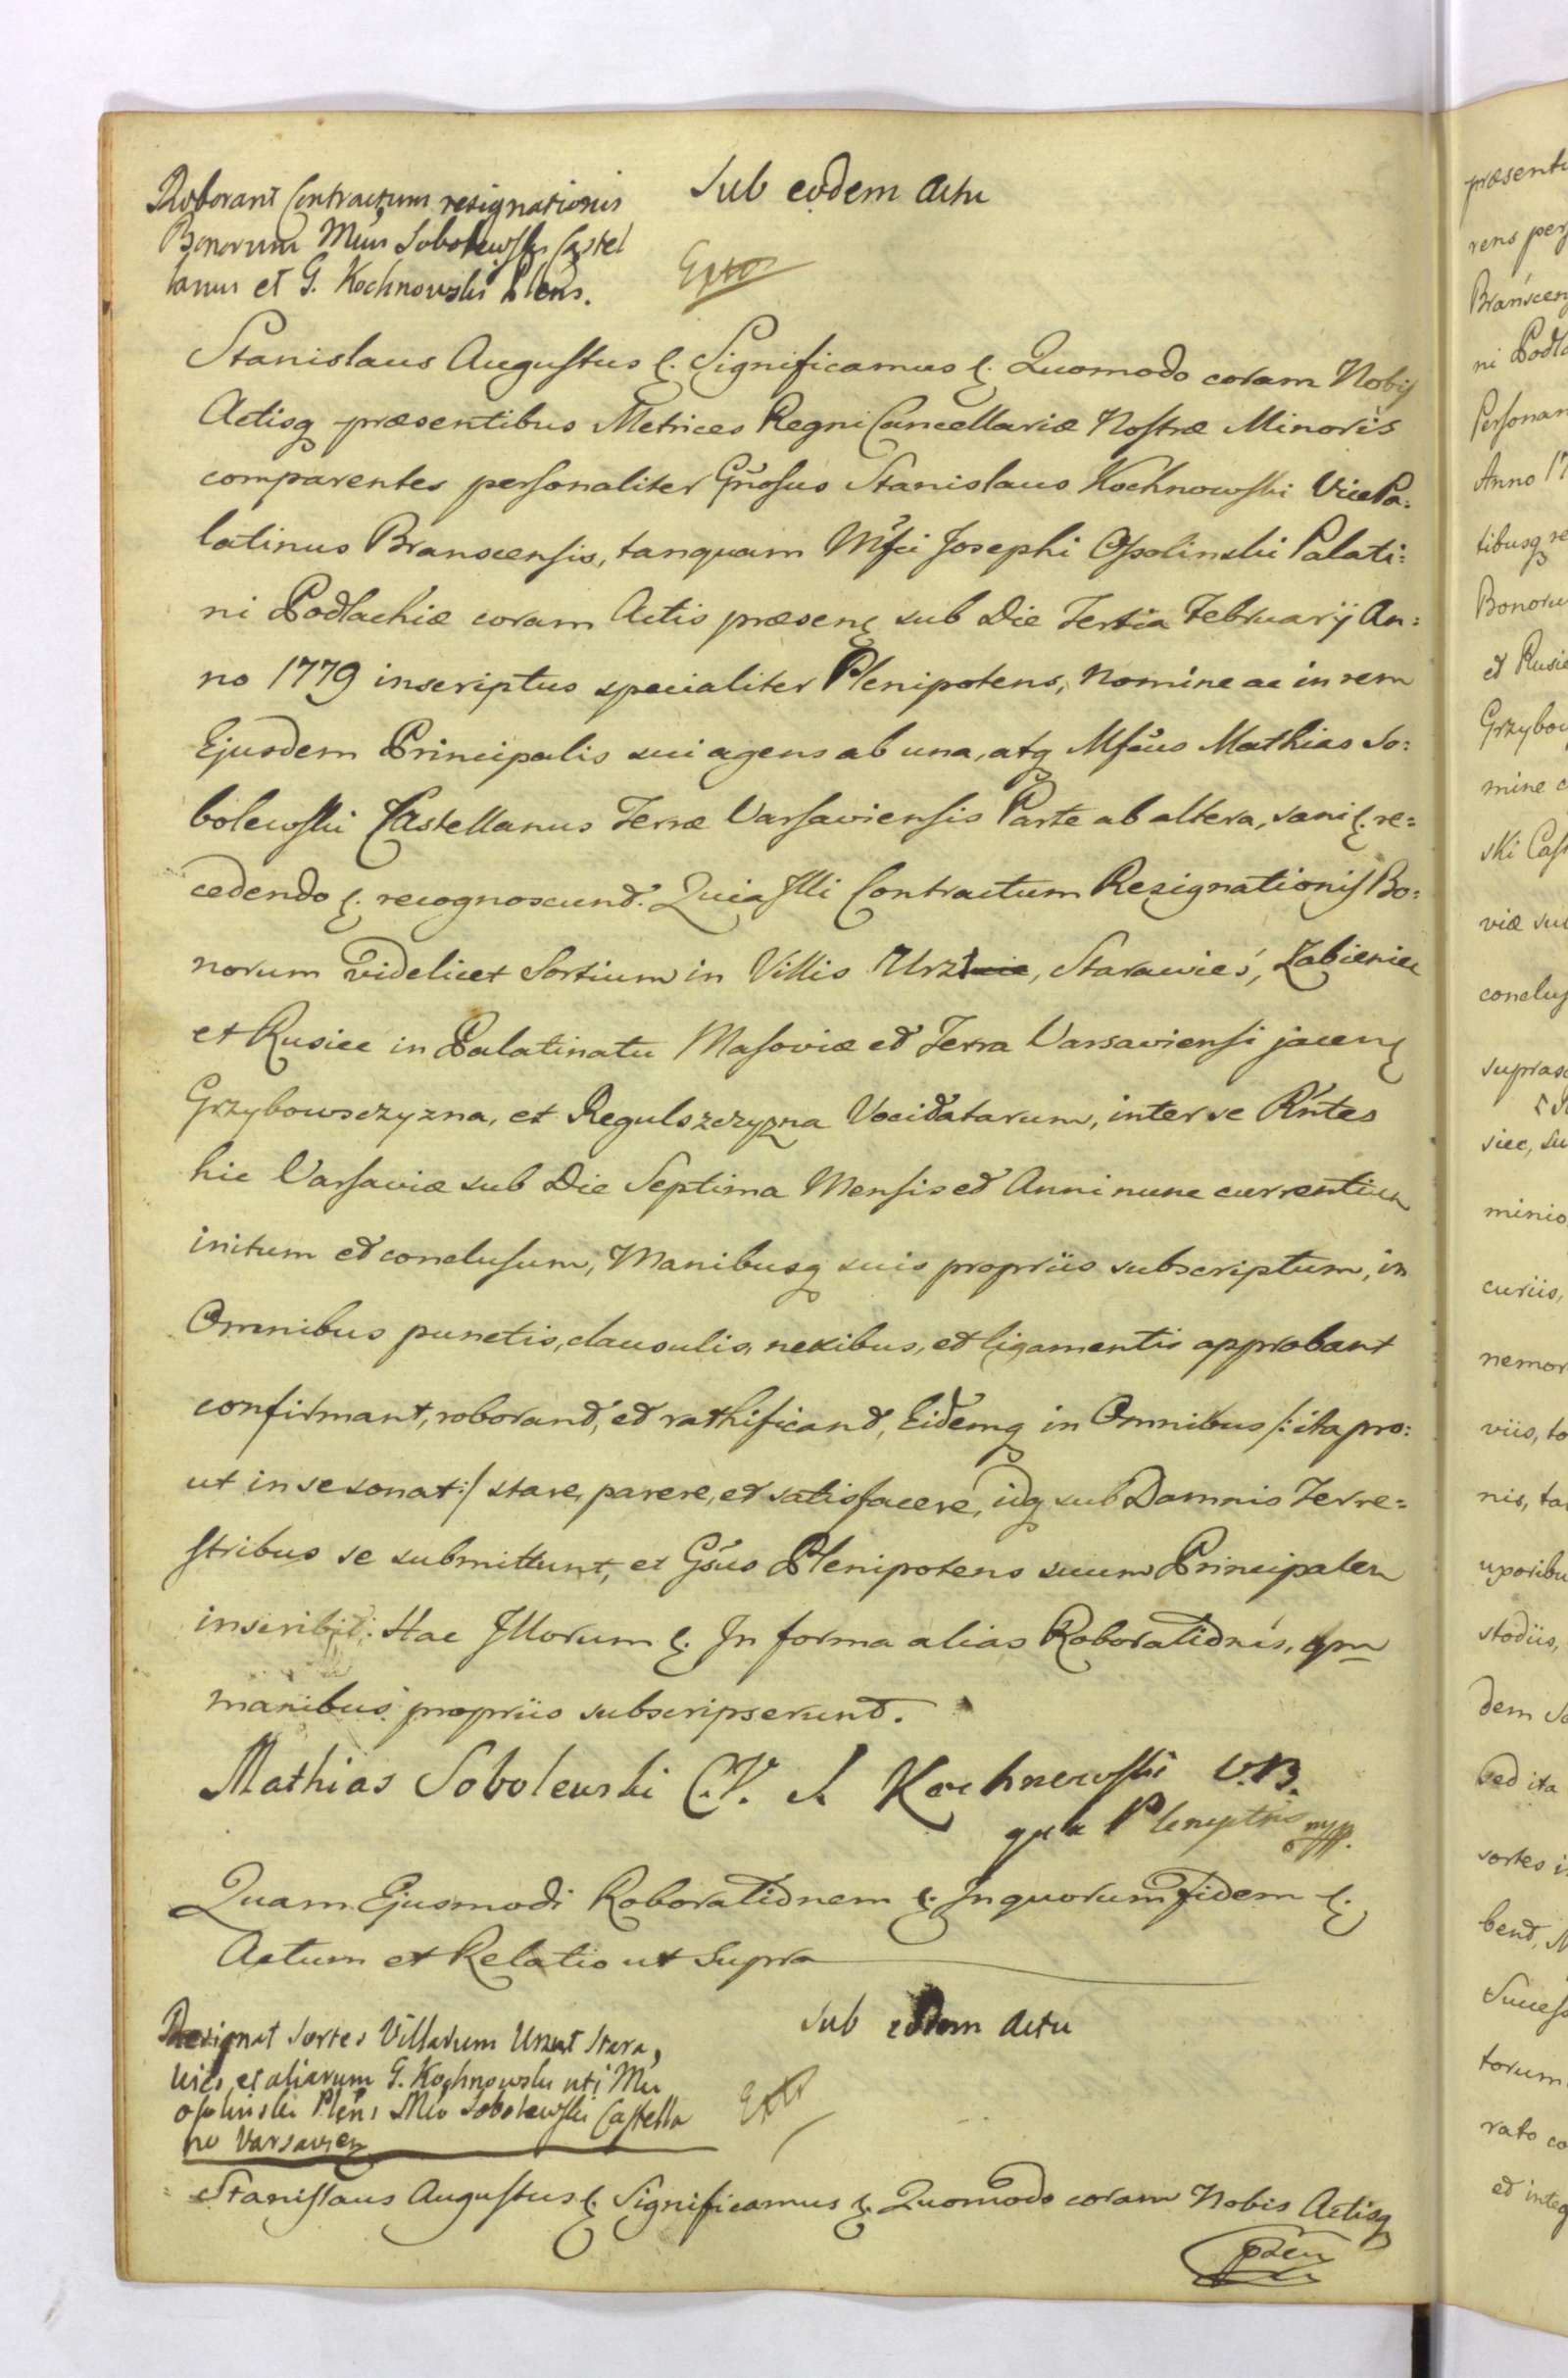 Roborant Contractum resignationis
Bonorum Mcus Sobolewski Castel
lanus et G. Kochnowski Plens.
Sub eodem Actu
Extr
Stanislaus Augustus &. Significamus &. Quomodo coram Nobis
Actisq præsentibus Metrices Regni Cancellariæ Nostræ Minoris
comparentes personaliter Gnosus Stanislaus Kochnowski Vice Pa:
latinus Branscensis, tanquam Mfci Josephi Ossolinski Palati:
ni Podlachiæ coram Actis præsen&. sub Die Tertia Februarij An:
no 1779 inscriptus specialiter Plenipotens, Nomine ac in rem
Ejusdem Principalis sui agens ab una, atq Mfcus Mathias So:
bolewski Castellanus Terræ Varsaviensis Parte ab altera, sani &. re=
cedendo &. recognoscund. Quia Illi Contractum Resignationis Bo:
norum videlicet Sortium in Villis Urzut, Starawieś, Żabieniec
et Rusiec in Palatinatu Masoviæ et Terra Varsaviensi jacen&
Grzybowsczyzna, et Regulszczyzna Vocitatarum, inter se Rńtes
hic Varsaviæ sub Die Septima Mensis et Anni nunc currentium
initum et conclusum, Manibusq suis propriis subscriptum, in
Omnibus punctis, clausulis, nexibus, et ligamentis approbant
confirmant, roborand, et rathificand, Eidemq in Omnibus /: ita pro:
ut in se sonat :/ stare, parere, et satisfacere, idq sub Damnis Terre=
stribus se submittunt, et Gsus Plenipotens suum Principalem
inscribit: Hac Illorum &. In forma alias Roborationis, qm
manibus propriis subscripserund.
Mathias Sobolewski C.V. S. Kochnowski V.B.
qua Plenyptns mpp.
Quam Ejusmodi Roborationem &. In quorum Fidem &.
Actum et Relatio ut Supra
Resignat Sortes Villarum Urzut Stara,
wieś et aliarum G. Kochnowski uti Mci
Ossolinski Plens Mco Sobolewski Castella
no Varsavien
Sub eodem Actu
Extr
Stanislaus Augustus &. Significamus &. Quomodo coram Nobis Actisq
pŕzen
præsenti
rens per
Branscen
ni Podla
Personam
Anno 17
tibusq re
Bonoru
et Rusie
Grzybow
mine
ski Cas
viæ su
conclus
supras
siec, su
minio
curiis,
nemor
viis, to
nis, ta
uxoribu
stodiis,
dem
sed ita
sortes i
bend,
Success
torum
rato co
et integ